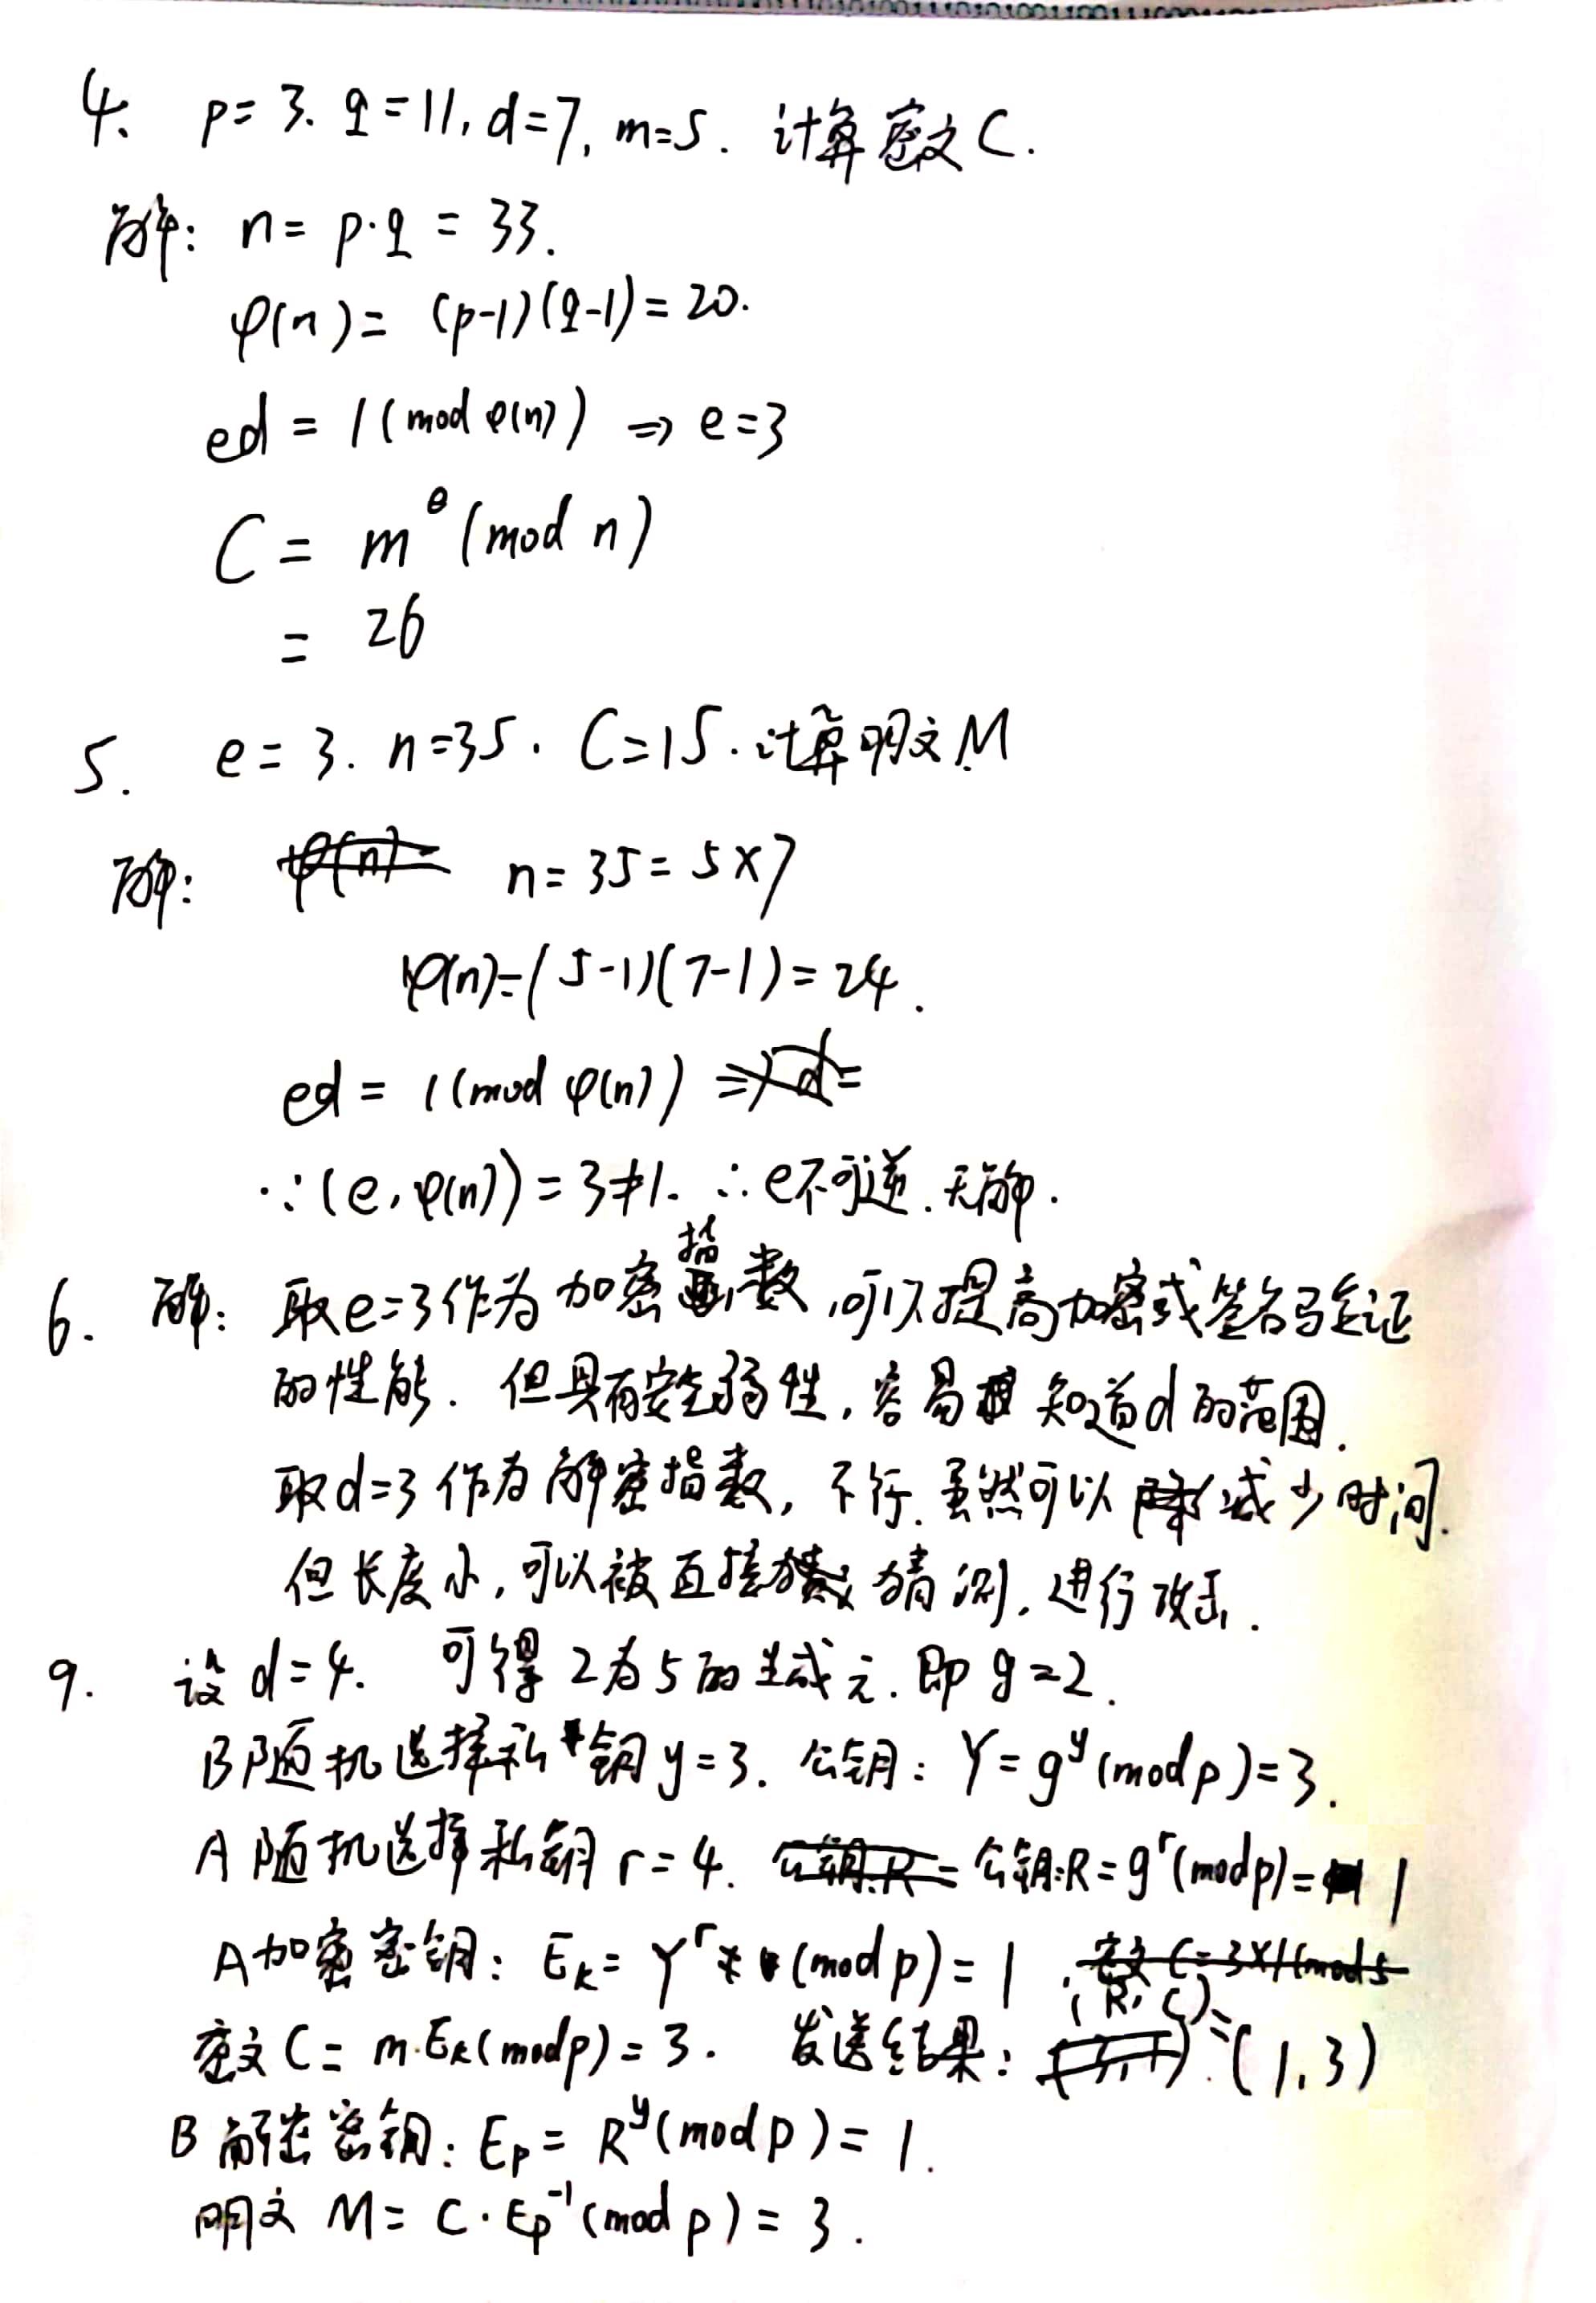 4. p=3. q=11, d=7, m=5. 计算密文C.
解: n= p·q = 33.
φ(n)= (p-1)(q-1)=20.
ed = 1(mod φ(n)) ⇒ e=3
C = m^e (mod n)
= 26
5. e=3. n=35. C=15. 计算明文M
解: n=35=5×7
φ(n)=(5-1)(7-1)=24.
ed = 1(mod φ(n))
∵(e,φ(n))=3≠1. ∴e不可逆.无解.
6. 解: 取e=3作为加密指数,可以提高加密或签名验证
的性能. 但具有安全弱性,容易知道d的范围.
取d=3作为解密指数,不行.虽然可以减少时间.
但长度小,可以被直接猜测,进行攻击.
9. 设d=4. 可得2为5的生成元.即g=2.
B随机选择私钥y=3. 公钥: Y=g^y(mod p)=3.
A随机选择私钥r=4. 公钥:R=g^r(mod p)=1
A加密密钥: E_k= Y^r(mod p)=1.
密文C= m·E_k(mod p)=3. 发送结果: (R,C)=(1,3)
B解密密钥: E_p= R^y(mod p)=1.
明文 M= C·E_p^-1(mod p)=3.